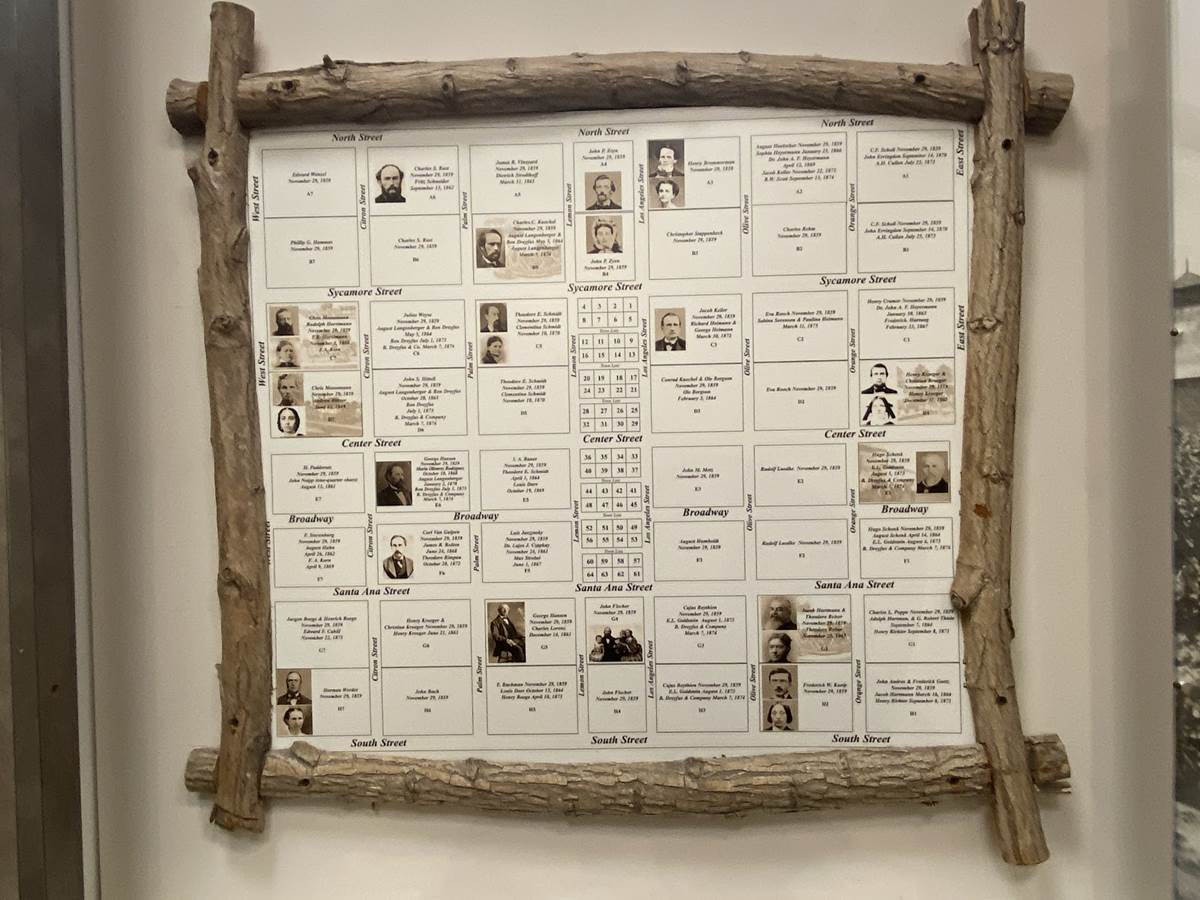 North Street
North Street
North Street
West Street
Citron Street
Palm Street
Lemon Street
Los Angeles Street
Olive Street
Orange Street
East Street
Edward Wenzel
November 29, 1859
A7
Charles S. Rust
November 29, 1859
Fritz Schneider
September 15, 1862
A6
James R. Vineyard
November 29, 1859
Dietrich Strodthoff
March 11, 1865
A5
John P. Zeyn
November 29, 1859
A4
Henry Bremmerman
November 29, 1859
A3
August Hoelscher November 29, 1859
Sophia Heyermann January 25, 1866
Dr. John A. F. Heyermann
April 12, 1869
Jacob Keller November 22, 1872
B.W. Scott September 15, 1874
A2
C.F. Scholl November 29, 1859
John Errington September 14, 1870
A.H. Cullen July 25, 1872
A1
Phillip G. Hammes
November 29, 1859
B7
Charles S. Rust
November 29, 1859
B6
Charles C. Kuechel
November 29, 1859
August Langenberger &
Ben Dreyfus May 5, 1864
August Langenberger
B5
John P. Zeyn
November 29, 1859
B4
Christopher Stappenbeck
November 29, 1859
B3
Charles Rehm
November 29, 1859
B2
C.F. Scholl November 29, 1859
John Errington September 14, 1870
A.H. Cullen July 25, 1872
B1
Sycamore Street
Sycamore Street
Sycamore Street
West Street
Citron Street
Palm Street
Lemon Street
Los Angeles Street
Olive Street
Orange Street
East Street
Chris Musmann
Rudolph Hartmann
November 29, 1859
C7
Julius Weyse
November 29, 1859
August Langenberger & Ben Dreyfus
May 5, 1864
Ben Dreyfus July 1, 1873
B. Dreyfus & Co. March 7, 1876
C6
Theodore E. Schmidt
November 29, 1859
Clementina Schmidt
November 10, 1870
C5
4 3 2 1
8 7 6 5
Town Lots
12 11 10 9
16 15 14 13
Town Lots
20 19 18 17
24 23 22 21
Town Lots
28 27 26 25
32 31 30 29
Jacob Keller
November 29, 1859
Richard Heimann &
George Heimann
March 30, 1872
C3
Eva Rosch November 29, 1859
Sabina Sorenson & Paulina Heimann
March 11, 1875
C2
Henry Cramer November 29, 1859
Dr. John A. F. Heyermann
January 10, 1865
Frederick Hartung
February 25, 1867
C1
Chris Musmann
November 29, 1859
D7
John S. Hittell
November 29, 1859
August Langenberger & Ben Dreyfus
October 20, 1865
Ben Dreyfus
July 1, 1873
B. Dreyfus & Company
March 7, 1876
D6
Theodore E. Schmidt
November 29, 1859
Clementina Schmidt
November 10, 1870
D5
Conrad Kuechel & Ole Borgson
November 29, 1859
Ole Borgson
February 5, 1864
D3
Eva Rosch November 29, 1859
D2
Henry Kroeger &
Christian Kroeger
November 29, 1859
Henry Kroeger
D1
Center Street
Center Street
Center Street
H. Paddersatz
November 29, 1859
August 15, 1862
E7
George Hansen
November 29, 1859
August Langenberger
Ben Dreyfus July 1, 1873
B. Dreyfus & Company
March 7, 1876
E6
J. A. Bauer
November 29, 1859
Theodore E. Schmidt
April 1, 1864
Louis Dorr
October 19, 1869
E5
36 35 34 33
40 39 38 37
Town Lots
44 43 42 41
48 47 46 45
Town Lots
52 51 50 49
56 55 54 53
Town Lots
60 59 58 57
64 63 62 61
John M. Metz
November 29, 1859
E3
Rudolf Luedke November 29, 1859
E2
Hugo Schenk
November 29, 1859
E.L. Goldstein
August 1, 1873
B. Dreyfus & Company
E1
Broadway
Broadway
Broadway
Broadway
West Street
Citron Street
Palm Street
Lemon Street
Los Angeles Street
Olive Street
Orange Street
F. Sternberg
November 29, 1859
August Hahn
April 26, 1862
F. A. Korn
April 9, 1869
F7
Carl Von Gulpen
November 29, 1859
James B. Reslow
June 24, 1868
Theodore Rimpau
October 28, 1872
F6
Luis Jazynsky
November 29, 1859
November 20, 1861
Max Strobel
June 1, 1867
F5
August Humboldt
November 29, 1859
F3
Rudolf Luedke November 29, 1859
F2
Hugo Schenk November 29, 1859
August Schenk April 14, 1864
E.L. Goldstein August 4, 1873
B. Dreyfus & Company March 7, 1876
F1
Santa Ana Street
Santa Ana Street
Santa Ana Street
Citron Street
Palm Street
Lemon Street
Los Angeles Street
Olive Street
Orange Street
Jurgen Boege & Henrich Boege
November 29, 1859
Edward F. Cahill
November 22, 1872
G7
Henry Kroeger &
Christian Kroeger November 29, 1859
Henry Kroeger June 21, 1865
G6
George Hansen
November 29, 1859
Charles Lorenz
December 14, 1861
G5
John Fischer
November 29, 1859
G4
Cajus Boythien
November 29, 1859
E.L. Goldstein August 1, 1873
B. Dreyfus & Company
March 7, 1876
G3
Jacob Hartmann &
Theodore Reiser
November 29, 1859
Theodore Reiser
G2
Charles L. Poppe November 29, 1859
September 7, 1864
Henry Richter September 8, 1872
G1
Herman Worder
November 29, 1859
H7
John Buch
November 29, 1859
H6
F. Bachman November 29, 1859
Louis Dorr October 13, 1864
Henry Boege April 10, 1872
H5
John Fischer
November 29, 1859
H4
Cajus Boythien November 29, 1859
E.L. Goldstein August 1, 1873
B. Dreyfus & Company March 7, 1876
H3
Frederick W. Kuelp
November 29, 1859
H2
John Andres & Frederick Goetz
November 29, 1859
Jacob Hartmann March 16, 1866
Henry Richter September 8, 1872
H1
South Street
South Street
South Street